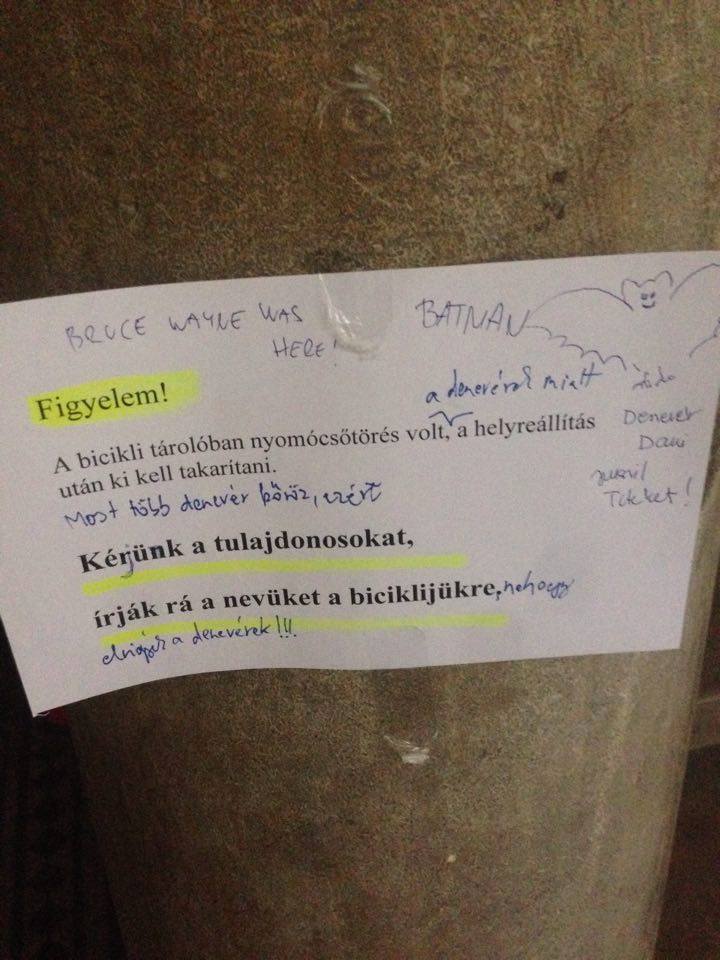 BRUCE WAYNE WAS
HERE!
BATMAN
Figyelem!
a denevérek miatt
A bicikli tárolóban nyomócsőtörés volt, a helyreállítás
után ki kell takarítani.
Most több denevér köröz, ezért
Kérjünk a tulajdonosokat,
írják rá a nevüket a biciklijükre, nehogy
a denevérek!!!
Denever
Dani
Titeket!